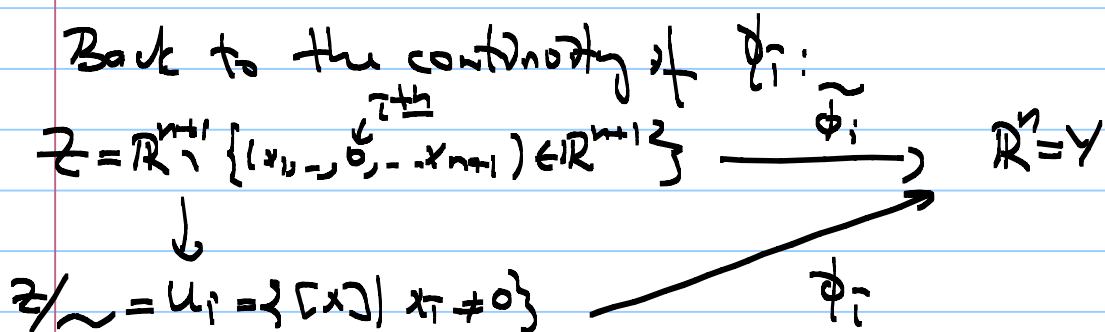 Back to the continuity of ϕᵢ:
iᵗʰ
Z = ℝⁿ⁺¹ \ {(x₁, _, 0, _ _ xₙ₊₁) ∈ ℝⁿ⁺¹} ⟶ ϕ̃ᵢ ℝⁿ = Y
↓
Z/∼ = Uᵢ = {[x] | xᵢ ≠ 0} ϕᵢ